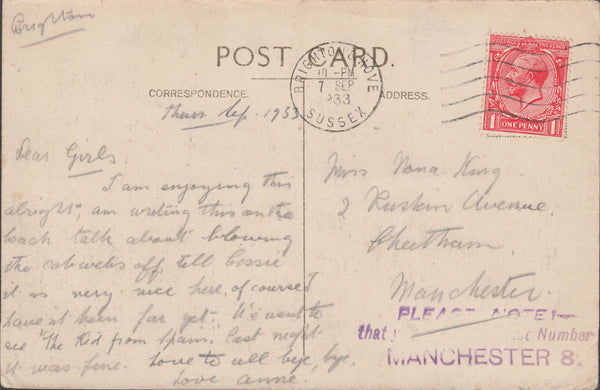 Brighton
POST CARD.
CORRESPONDENCE.
ADDRESS.
BRIGHTON & HOVE
10 - PM
7 SEP
1933
SUSSEX
POSTAGE REVENUE
ONE PENNY
Thurs Sep. 1933
Dear Girls
I am enjoying this
alright, am writing this on the
beach talk about blowing
the cobwebs off, tell Cissie
it is very nice here, of course I
have it been far yet. We went to
see "The Kid from Spain. Last night
it was fine. Love to all bye, bye.
Love Anne.
Miss Nona King.
2 Ruskin Avenue.
Cheetham.
Manchester.
PLEASE NOTE!—
that Number
MANCHESTER 8.